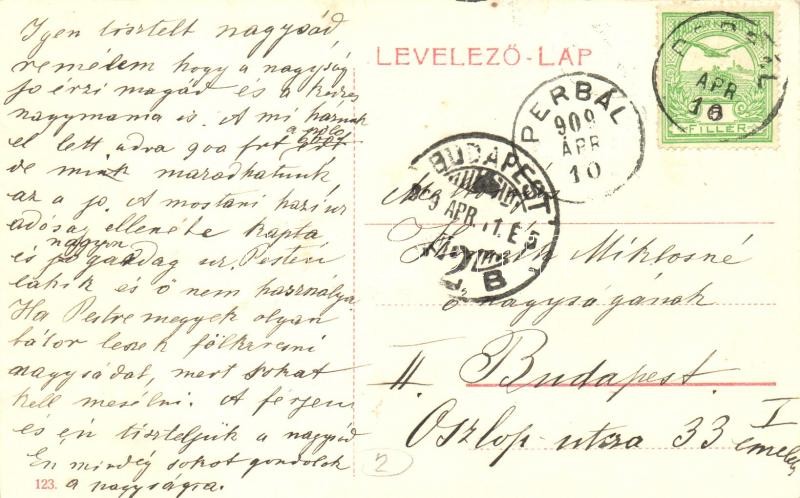 Igen tisztelt nagysád
remélem hogy a nagyság
jo érzi magád és a kedves
nagymama is. A mi házunk
el lett adva 900 frt
de mink maradhatunk
az a jo. A mostani háziur
adóság ellenébe kapta
és nagyon gazdag ur. Pesten
lakik és ő nem használja
Ha Pestre megyek olyan
bátor leszek fölkeresni
nagysádat, mert sokat
kell mesélni. A férjem
és én tiszteljük a nagysád
En mindég sokat gondolok
a nagyságra.
123.
LEVELEZŐ-LAP
PERBÁL
909
ÁPR
10
BUDAPEST
9 APR 11. E
B
APR
10
MAGYAR KIR. POSTA
FILLÉR
Miklosné
ő nagyságának
II Budapest
Oszlop-utza 33 I
emelet
2